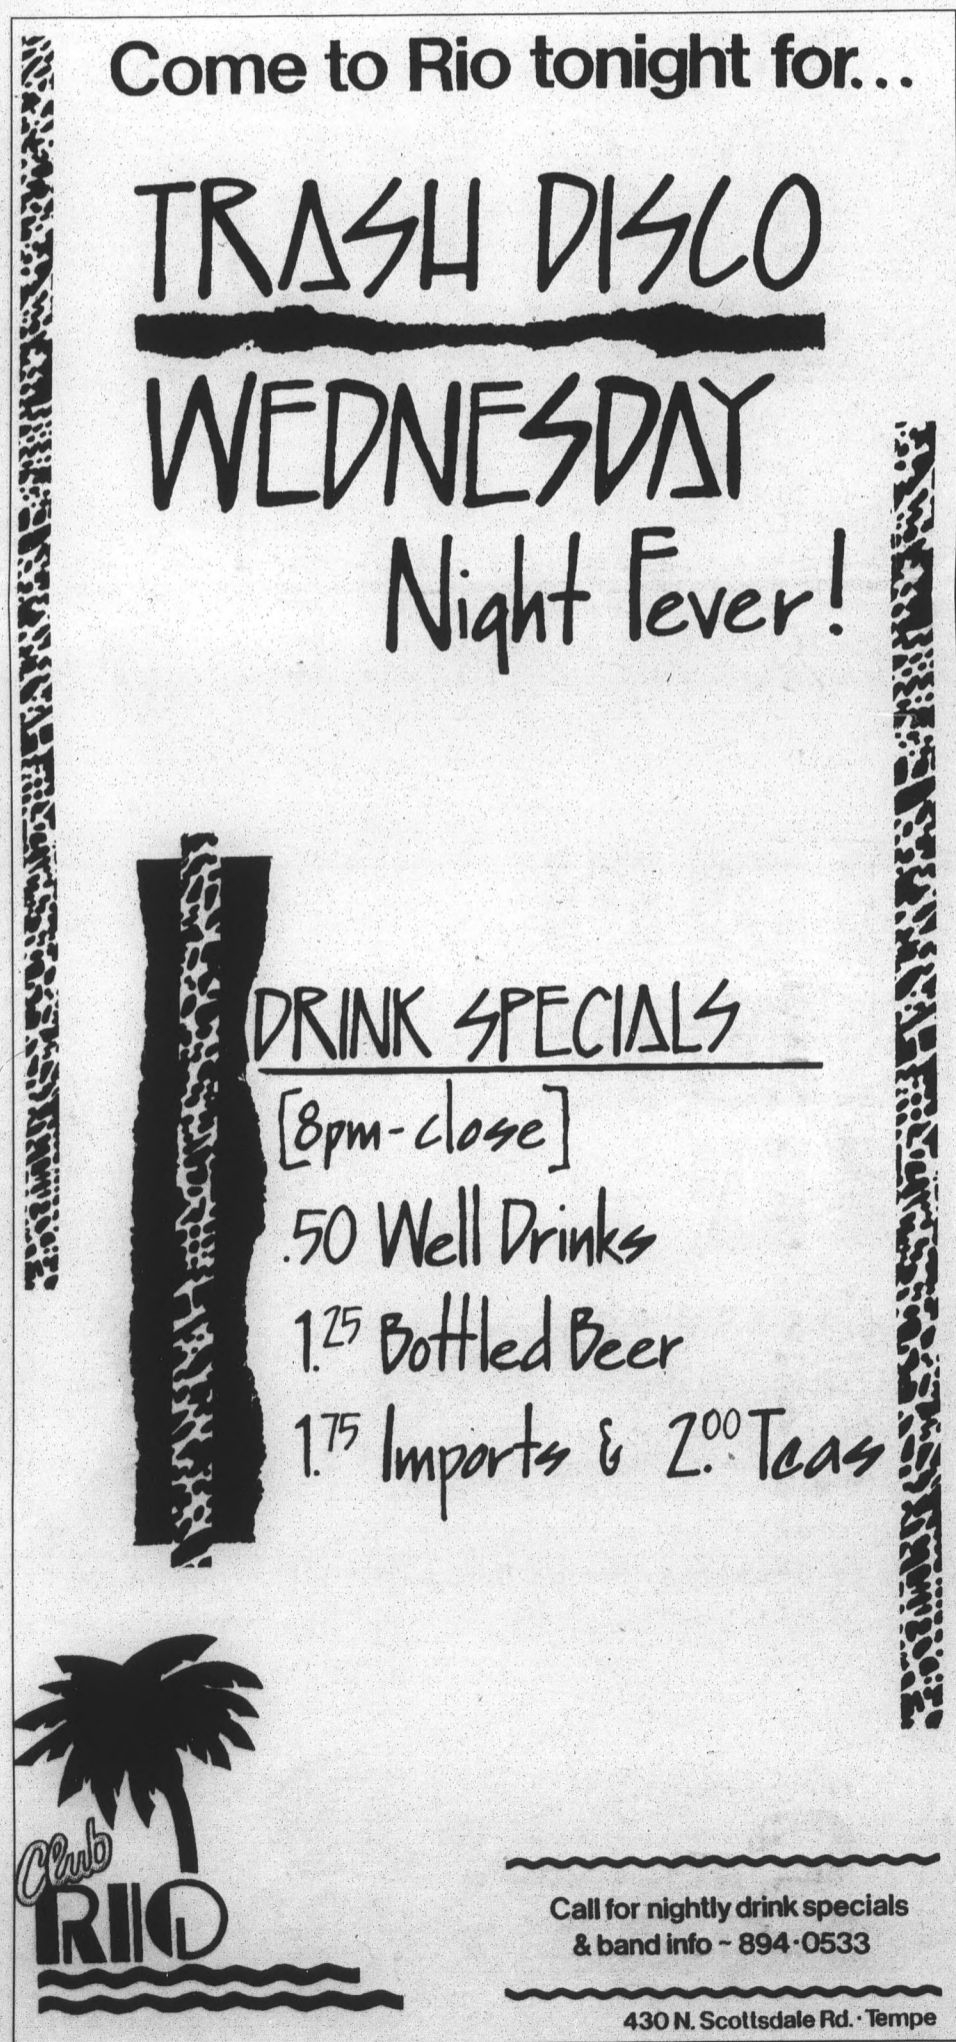 Come to Rio tonight for...
TRASH DISCO
WEDNESDAY
Night Fever!
DRINK SPECIALS
[8pm-close]
.50 Well Drinks
1.25 Bottled Beer
1.75 Imports & 2.00 Teas
Club
RIO
Call for nightly drink specials
& band info ~ 894·0533
430 N. Scottsdale Rd. · Tempe